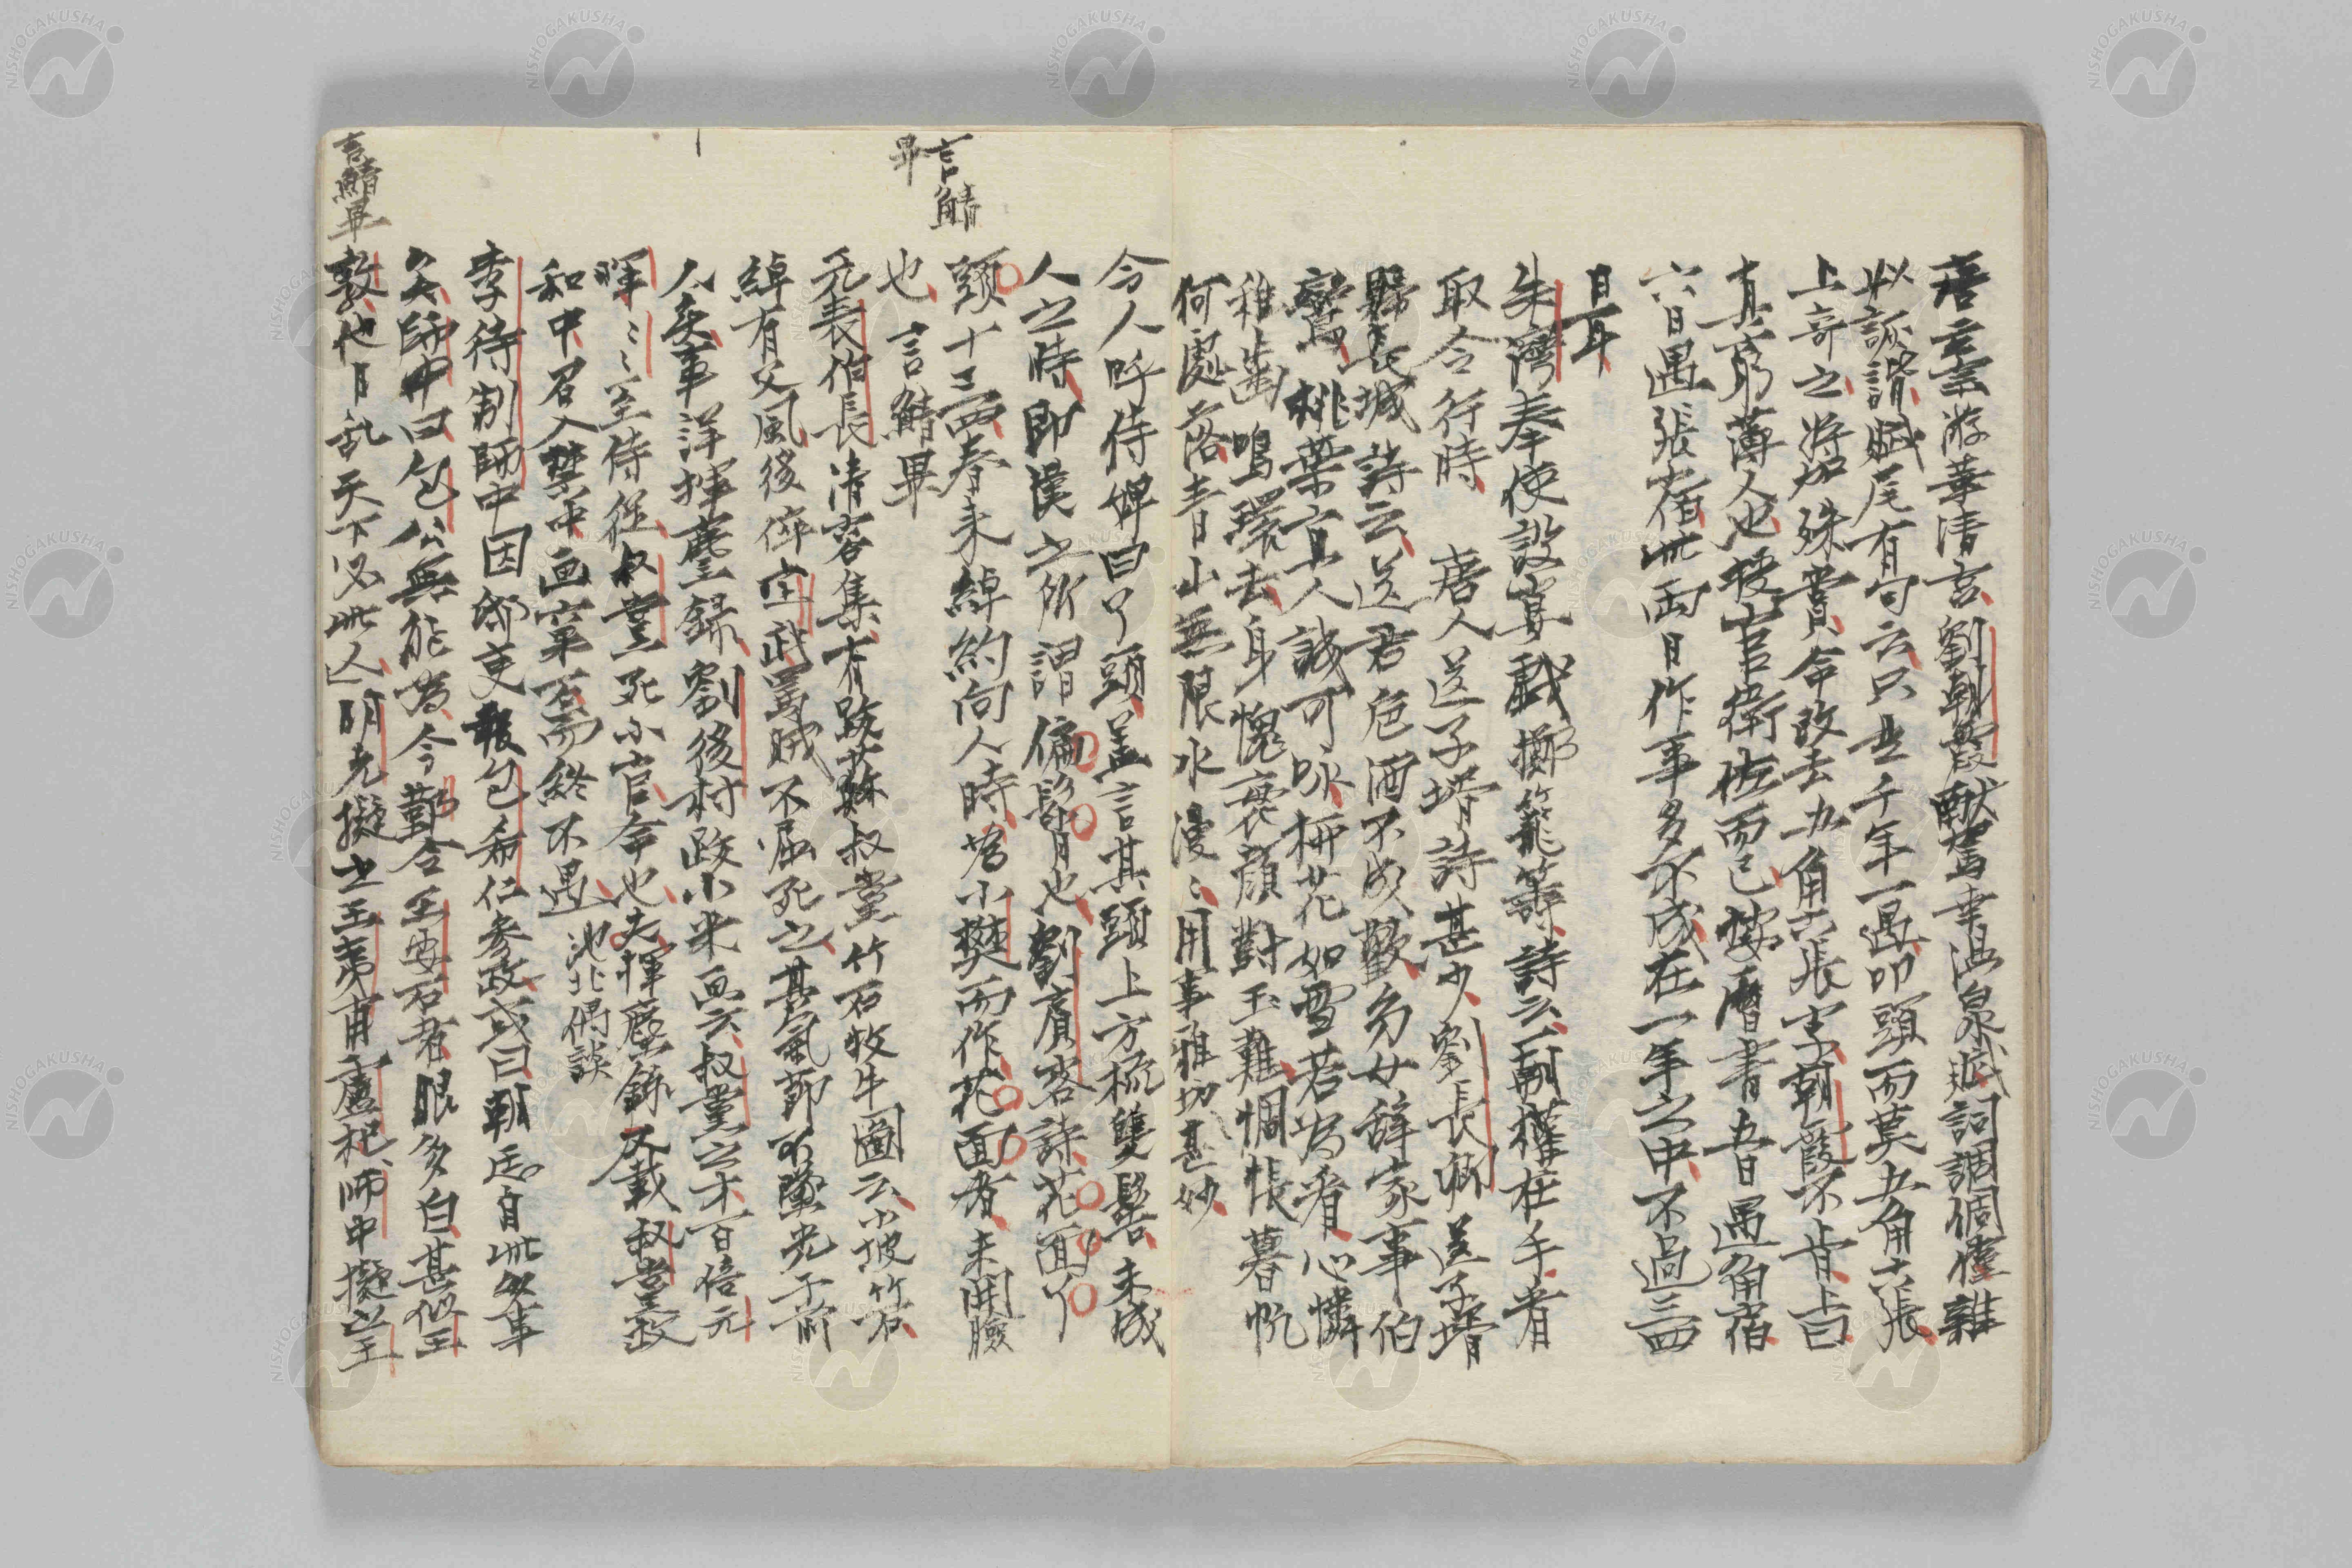 唐玄宗游華清宮劉朝霞献駕幸温泉賦詞調倜儻雜
以詼諧賦尾有句云只此千年一遇叩頭而莫五角六張
上奇之将加殊賞命改去五角六張字朝霞不肯上曰
真窮薄人也授官衛佐而已按暦書五日遇角宿
六日遇張宿此両日作事多不成在一年之中不過三四
日耳
朱湾奉使設宴戯擲籠籌詩云一朝権在手看
取令行時 唐人送子壻詩甚少劉長卿送子壻
歸長城詩云送君卮酒不成歡幼女辞家事伯
鸞桃葉宜人誠可咏栁花如雪若為看心憐
稚齒鳴環去身愧衰顔對玉難惆悵暮帆
何處落青山無限水漫〻用事雅切甚妙
今人呼侍婢曰丫頭盖言其頭上方梳雙髻未成
人之時即漢之所謂偏髾也劉賓客詩花面丫
頭十三四春来綽約向人時為小樊而作花面者未開臉
也 言鯖畢
言鯖
畢
元袁伯長清容集有跋蘇叔黨竹石牧牛圖云小坡竹石
綽有父風後倅定武罵賊不屈死之其氣節不墜先子前
人矣事詳揮麈録劉後村跋小米画云叔黨之才百倍元
暉〻〻至侍從叔黨死小官命也夫揮麈録又載叔黨政
和中召入禁中画窠石而終不遇 池北偶談
李待制師中因邸吏報包希仁参政或曰朝廷自此多事
矣師中曰包公無能為今鄞令王安石者眼多白甚似王
敦他日乱天下必此人明允擬之王夷甫盧杞師中擬之王
言鯖再